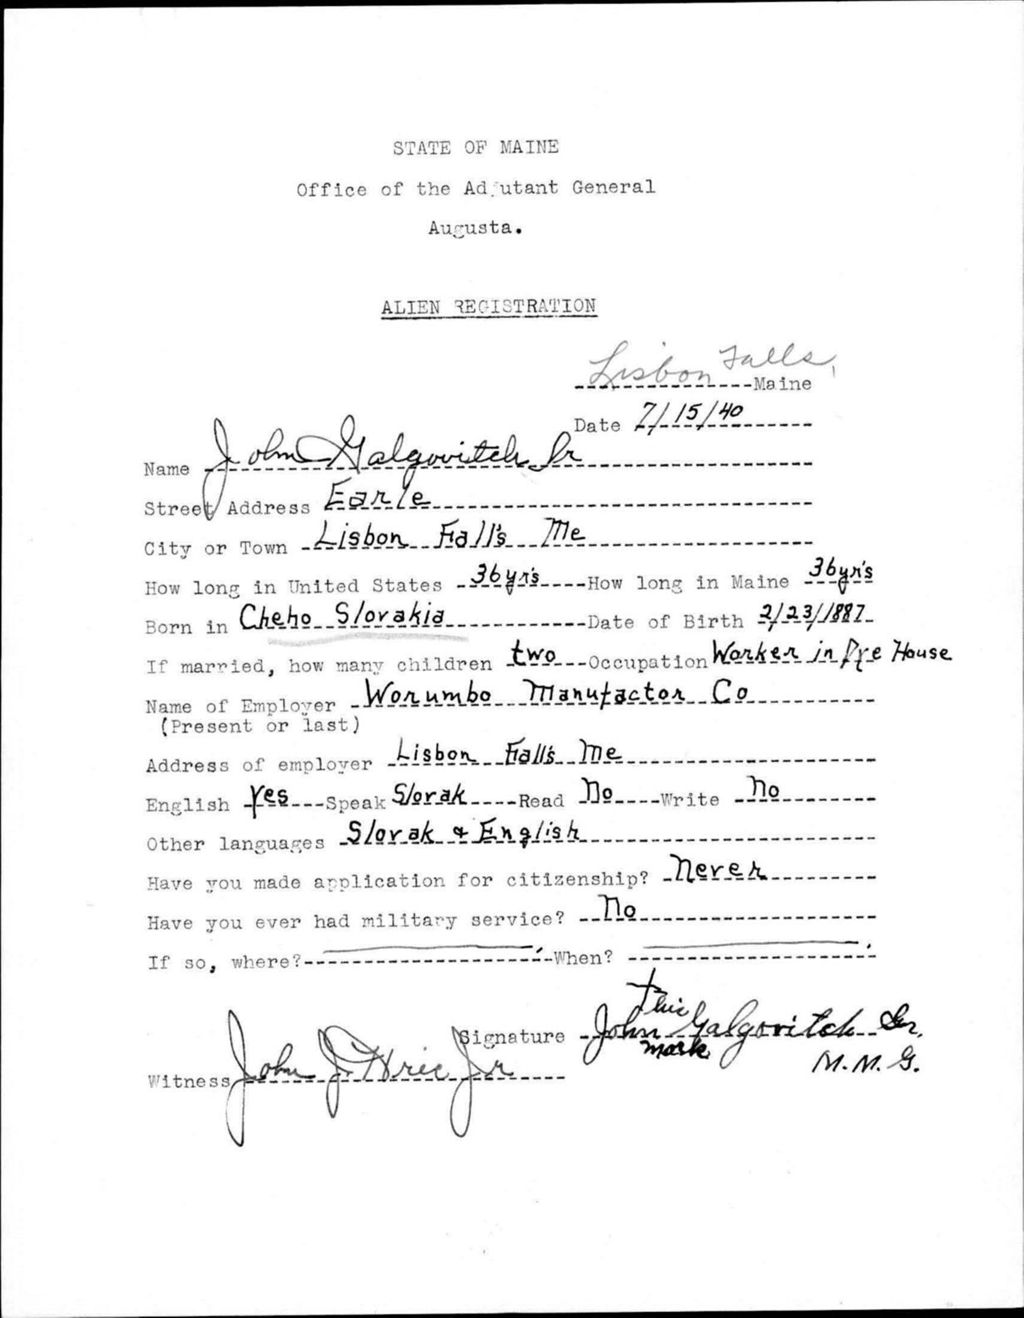 STATE OF MAINE
Office of the Adjutant General
Augusta.
ALIEN REGISTRATION
Lisbon Falls, Maine
Date 7/15/40
Name John Galgovitch Sr
Street Address Earle
City or Town Lisbon Fall's Me
How long in United States 36 yr's How long in Maine 36 yr's
Born in Cheho Slovakia Date of Birth 2/23/1887
If married, how many children two Occupation Worker in Dye House
Name of Employer Worumbo Manufactor Co
(Present or last)
Address of employer Lisbon Fall's Me
English Yes Speak Slovak Read No Write No
Other languages Slovak & English
Have you made application for citizenship? Never
Have you ever had military service? No
If so, where? When?
Signature John Galgovitch Sr.
his
mark
M.M.G.
Witness John J. Hric Jr